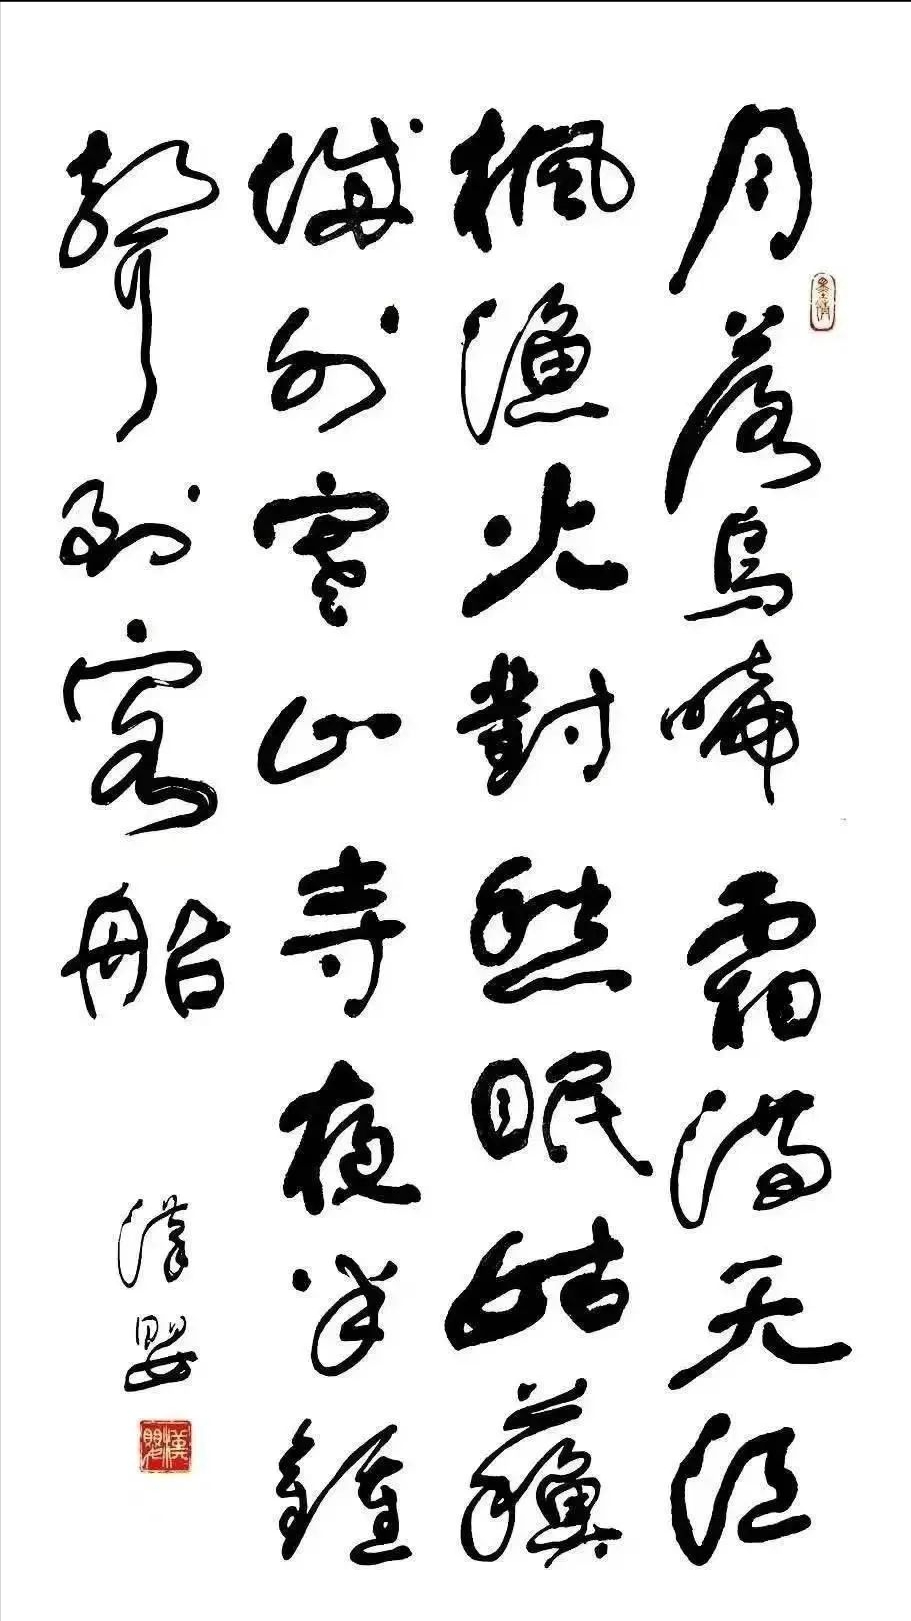 月落烏啼霜滿天江
楓漁火對愁眠姑蘓
城外寒山寺夜半鐘
聲到客船
漢嬰
漢嬰
墨情